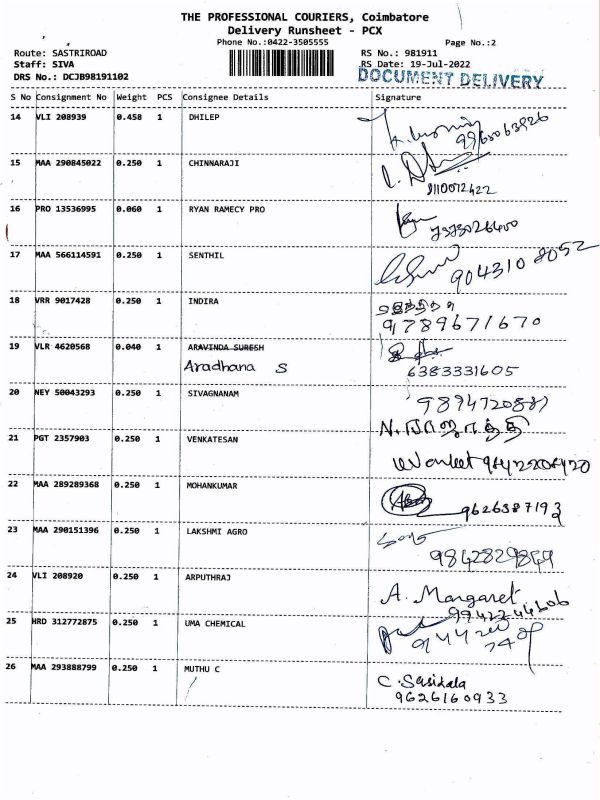 THE PROFESSIONAL COURIERS, Coimbatore
Delivery Runsheet - PCX
Phone No.:0422-3505555 Page No.:2
Route: SASTRIROAD RS No.: 981911
Staff: SIVA RS Date: 19-Jul-2022
DRS No.: DCJB98191102 DOCUMENT DELIVERY
S No Consignment No Weight PCS Consignee Details Signature
14 VLI 208939 0.458 1 DHILEP
15 MAA 290845022 0.250 1 CHINNARAJI
16 PRO 13536995 0.060 1 RYAN RAMECY PRO
17 MAA 566114591 0.250 1 SENTHIL
9043108052
18 VRR 9017428 0.250 1 INDIRA
9789671670
19 VLR 4620568 0.040 1 ARAVINDA SURESH
Aradhana S 6383331605
20 NEY 50043293 0.250 1 SIVAGNANAM
21 PGT 2357903 0.250 1 VENKATESAN
22 MAA 289289368 0.250 1 MOHANKUMAR
9626387193
23 MAA 290151396 0.250 1 LAKSHMI AGRO
24 VLI 208920 0.250 1 ARPUTHRAJ
A. Margaret
25 HRD 312772875 0.250 1 UMA CHEMICAL
26 MAA 293888799 0.250 1 MUTHU C
C. Sasikala
9626160933